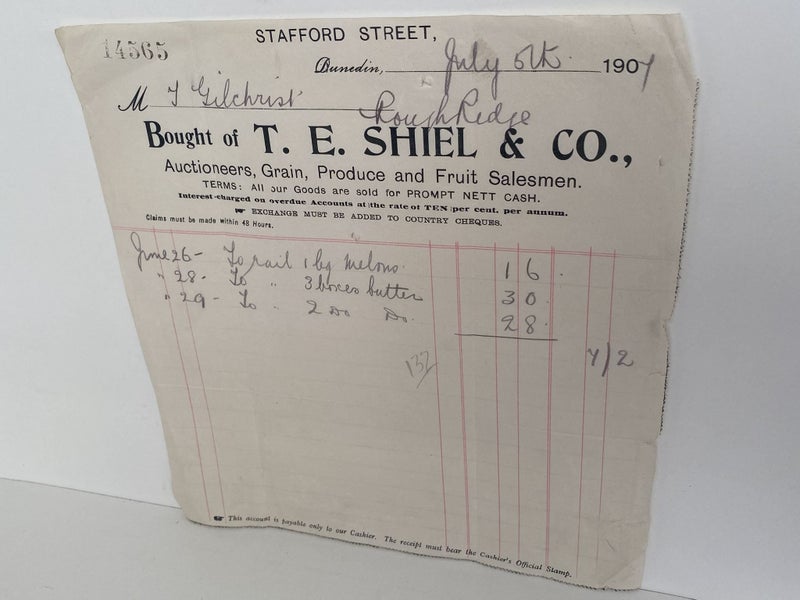 14565
STAFFORD STREET,
Dunedin, July 5th 1907
M T Gilchrist
Rough Ridge
Bought of T. E. SHIEL & CO.,
Auctioneers, Grain, Produce and Fruit Salesmen.
TERMS: All our Goods are sold for PROMPT NETT CASH.
Interest charged on overdue Accounts at the rate of TEN per cent. per annum.
☛ EXCHANGE MUST BE ADDED TO COUNTRY CHEQUES.
Claims must be made within 48 Hours.
June 26 - To rail 1 bg melons 1 6
" 28 - To " 3 boxes butter 3 0
" 29 - To " 2 Do Do. 2 8
7/2
132
☛ This account is payable only to our Cashier. The receipt must bear the Cashier's Official Stamp.